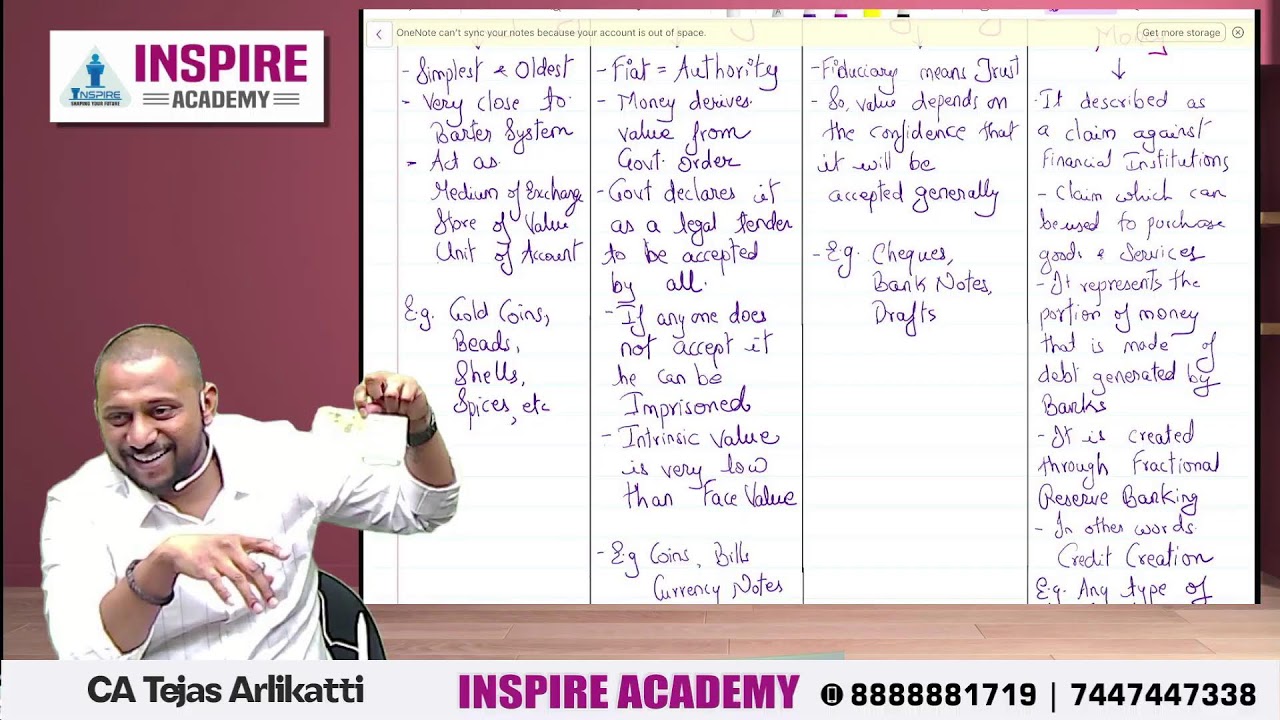 INSPIRE
ACADEMY
INSPIRE
SHAPING YOUR FUTURE
OneNote can't sync your notes because your account is out of space.
Get more storage
- Simplest & Oldest
- Very close to
Barter System
- Act as
Medium of Exchange
Store of Value
Unit of Account
E.g. Gold Coins,
Beads,
Shells,
Spices, etc
- Fiat = Authority
- Money derives
value from
Govt. order
- Govt declares it
as a legal tender
to be accepted
by all.
- If any one does
not accept it
he can be
Imprisoned
- Intrinsic value
is very low
than Face Value
- E.g Coins, Bills
Currency Notes
- Fiduciary means Trust
- So, value depends on
the confidence that
it will be
accepted generally
- E.g. Cheques,
Bank Notes,
Drafts
Money
- It described as
a claim against
Financial Institutions
- Claim which can
be used to purchase
goods & Services
- It represents the
portion of money
that is made of
debt generated by
Banks
- It is created
through Fractional
Reserve Banking
- In other words
Credit Creation
E.g. Any type of
CA Tejas Arlikatti
INSPIRE ACADEMY
8888881719 | 7447447338